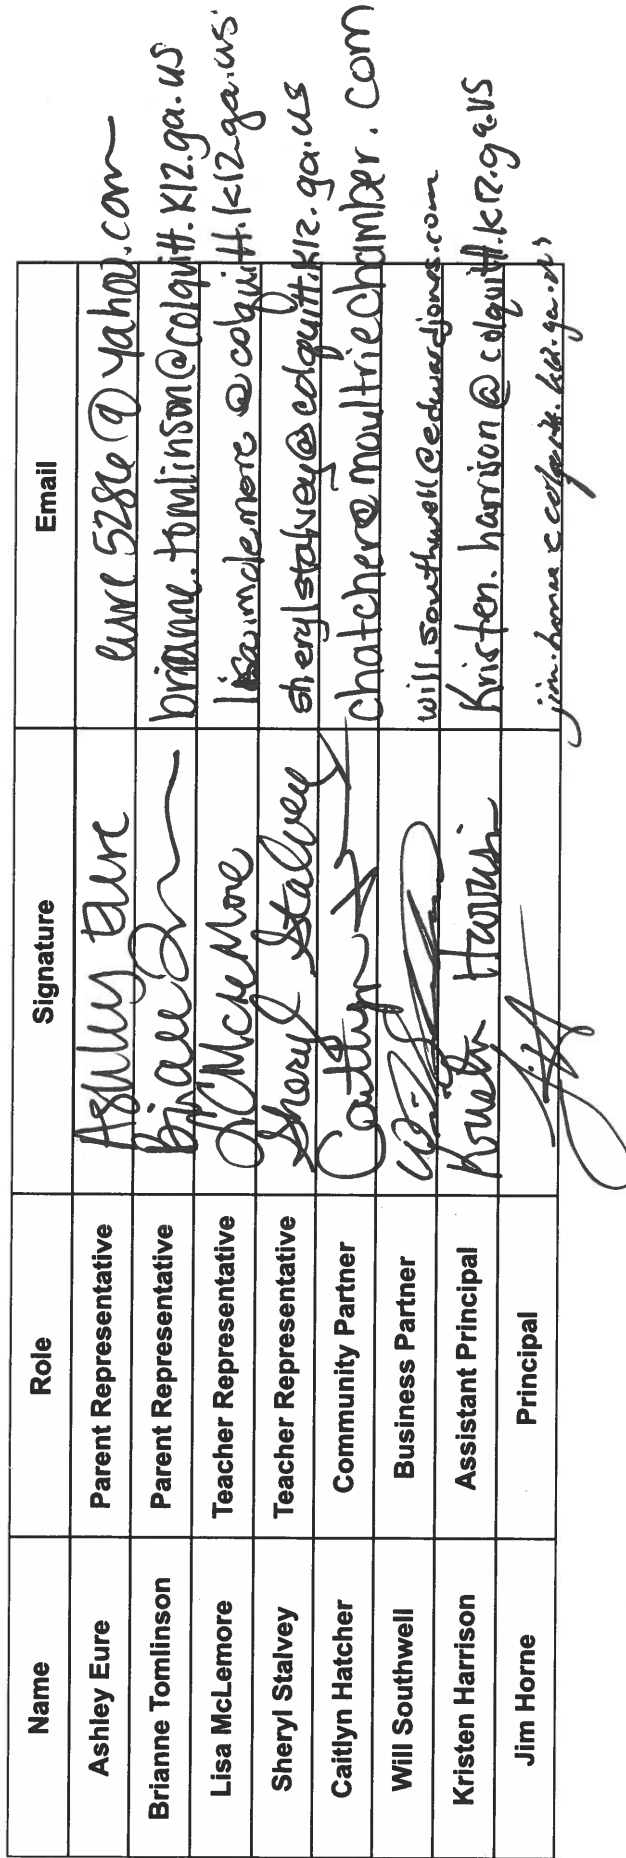 Name Role Signature Email
Ashley Eure Parent Representative Ashley Eure eure5286@yahoo.com
Brianne Tomlinson Parent Representative brianne.tomlinson@colquitt.k12.ga.us
Lisa McLemore Teacher Representative LCMcLemore lisa.mclemore@colquitt.k12.ga.us
Sheryl Stalvey Teacher Representative Sheryl Stalvey sherylstalvey@colquitt.k12.ga.us
Caitlyn Hatcher Community Partner Caitlyn chatcher@moultriechamber.com
Will Southwell Business Partner Will will.southwell@edwardjones.com
Kristen Harrison Assistant Principal Kristen Harrison Kristen.harrison@colquitt.k12.ga.us
Jim Horne Principal jim.horne@colquitt.k12.ga.us